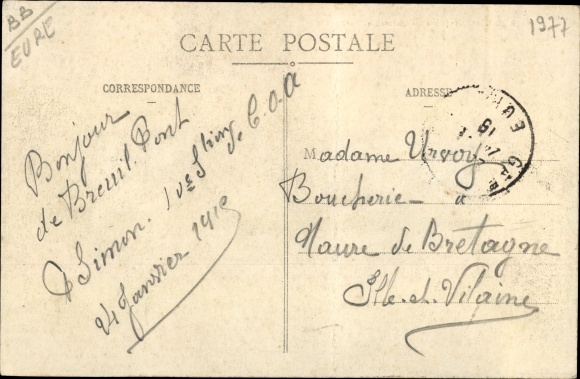 BB
EURE
1977
CARTE POSTALE
CORRESPONDANCE
ADRESSE
Bonjour
de Breuil. Pont
Simon.
24 Janvier 1919
C.O.A
Madame Urvoy
Boucherie à
Maure de Bretagne
Ille-et-Vilaine
EURE